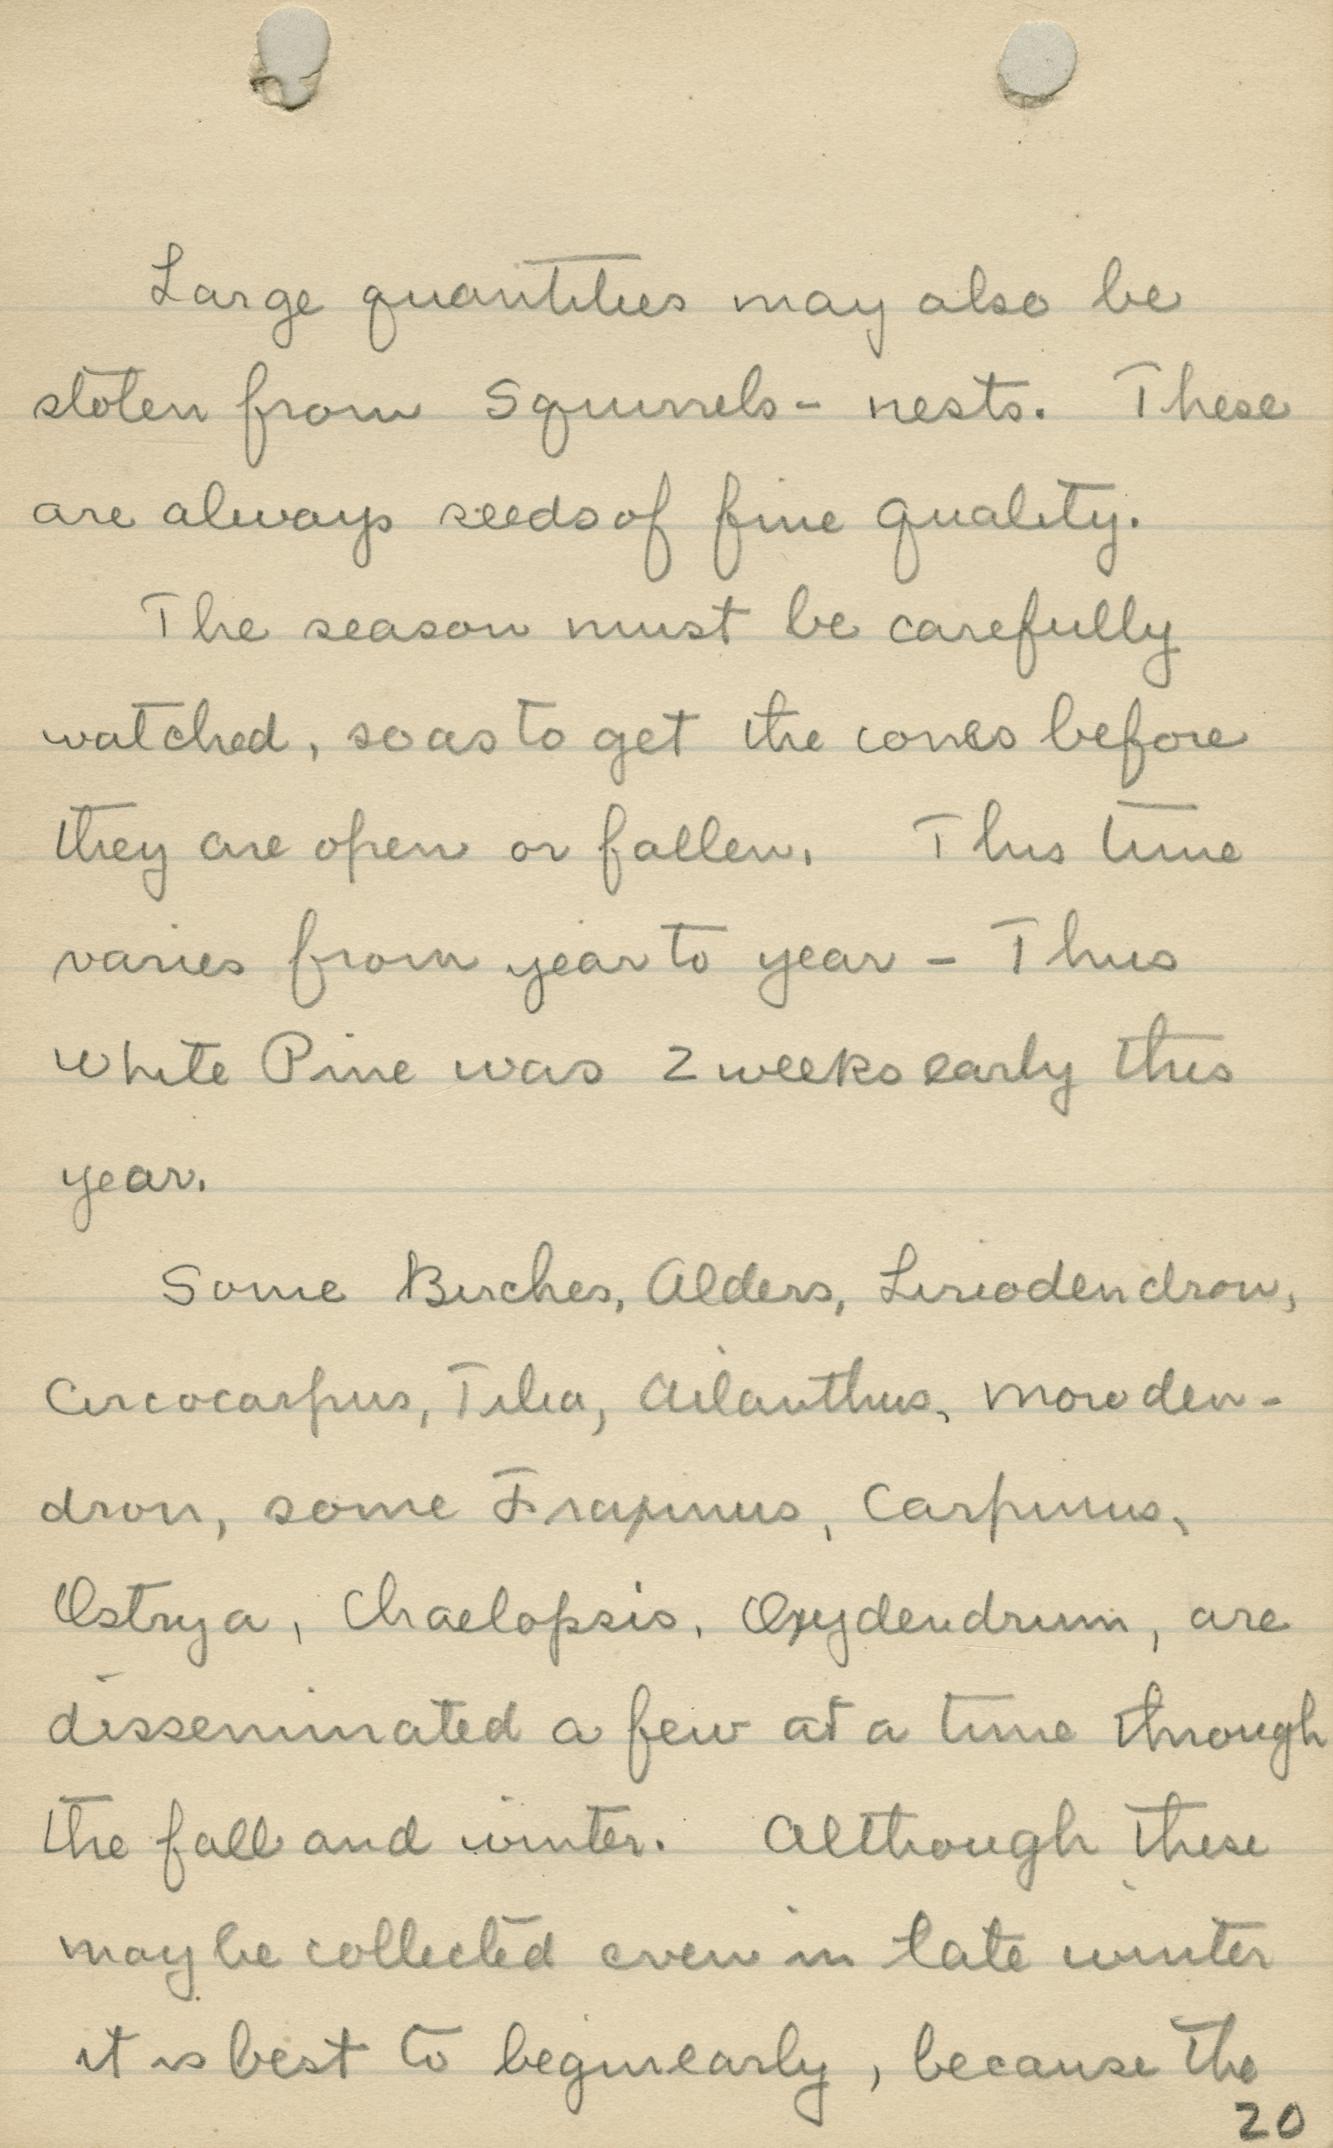 Large quantities may also be
stolen from Squirrels - nests. These
are always seeds of fine quality.
The season must be carefully
watched, so as to get the cones before
they are open or fallen. This time
varies from year to year - Thus
White Pine was 2 weeks early this
year.
Some Birches, Alders, Liriodendron,
Circocarpus, Tilia, Ailanthus, Moroden-
dron, some Fraxinus, Carpinus,
Ostrya, Chaelopsis, Oxydendrum, are
disseminated a few at a time through
the fall and winter. Although these
may be collected even in late winter
it is best to begin early, because the
20